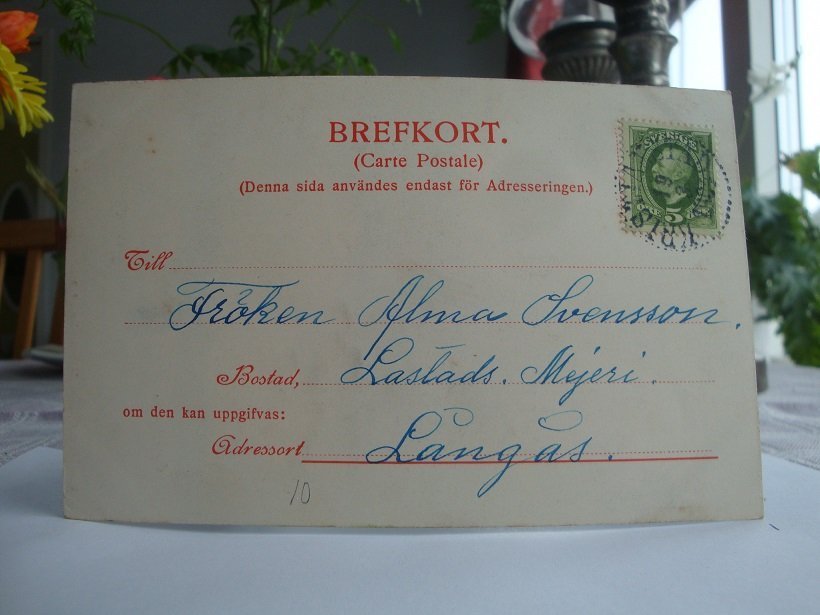 BREFKORT.
(Carte Postale)
(Denna sida användes endast för Adresseringen.)
SVERIGE
5
Till
Fröken Alma Svensson.
Bostad, Lastads. Mejeri.
om den kan uppgifvas:
Adressort Långås.
10